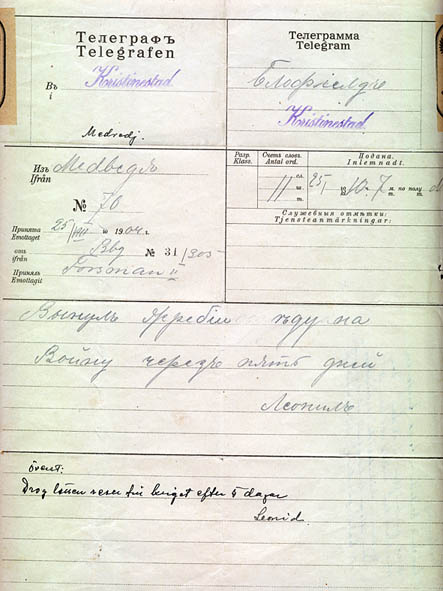 Телеграфъ
Telegrafen
Въ
i
Kristinestad.
Medvedj.
Телеграмма
Telegram
Kristinestad.
Изъ
Ifrån
Медведь
№ 70
Принята
Emottaget
25/VIII 1904 г.
отъ
ifrån
Bbg № 31/305
Принялъ
Emottagit
Forsman
Разр.
Klass.
Счетъ словъ.
Antal ord.
11
Подана.
Inlemnadt.
25
10 7 м. по полу
Служебныя отмѣтки:
Tjensteanmärkningar:
Вынулъ жребій ѣду на
Войну черезъ пять дней
Леонидъ
Övers:
Drog lotten reser till kriget efter 5 dagar
Leonid.